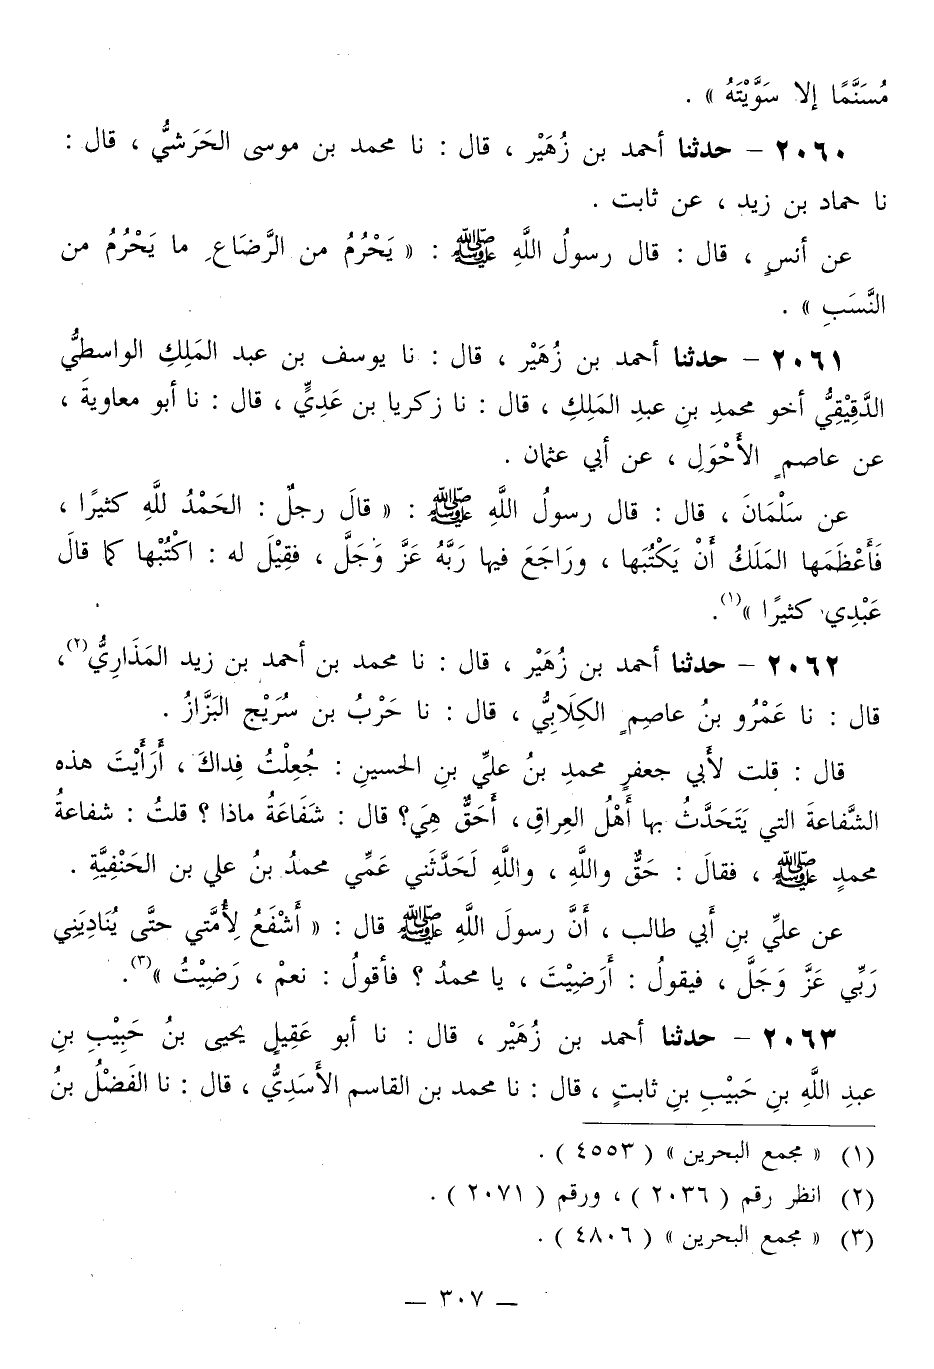 مُسَنَّمًا إلا سَوَّيْتَهُ » .
٢٠٦٠ – حدثنا أحمد بن زُهَيْر ، قال : نا محمد بن موسى الحَرَشيُّ ، قال :
نا حماد بن زيد ، عن ثابت .
عن أنسٍ ، قال : قال رسولُ اللَّهِ ﷺ : « يَحْرُمُ من الرَّضَاعِ ما يَحْرُمُ من
النَّسَبِ » .
٢٠٦١ – حدثنا أحمد بن زُهَيْر ، قال : نا يوسف بن عبد المَلِكِ الواسطيُّ
الدَّقِيْقِيُّ أخو محمدِ بنِ عبدِ المَلِكِ ، قال : نا زكريا بن عَدِيٍّ ، قال : نا أبو معاويةَ ،
عن عاصمٍ الأَحْوَلِ ، عن أبي عثمان .
عن سَلْمَانَ ، قال : قال رسولُ اللَّهِ ﷺ : « قالَ رجلٌ : الحَمْدُ للَّهِ كثيرًا ،
فَأَعْظَمَها المَلَكُ أَنْ يَكْتُبَها ، ورَاجَعَ فيها رَبَّهُ عَزَّ وَجَلَّ ، فقِيْلَ له : اكْتُبْها كما قالَ
عَبْدِي كثيرًا »(١).
٢٠٦٢ – حدثنا أحمد بن زُهَيْر ، قال : نا محمد بن أحمد بن زيد المَذَارِيُّ(٢)،
قال : نا عَمْرُو بنُ عاصِمٍ الكِلَابِيُّ ، قال : نا حَرْبُ بن سُرَيْجٍ البَزَّازُ .
قال : قلت لأَبي جعفرٍ محمدِ بنُ عليِّ بنِ الحسينِ : جُعِلْتُ فِداكَ ، أَرَأَيْتَ هذه
الشَّفاعةَ التي يَتَحَدَّثُ بها أَهْلُ العِراقِ ، أَحَقٌّ هِيَ؟ قال : شَفَاعَةُ ماذا ؟ قلتُ : شفاعةُ
محمدٍ ﷺ ، فقالَ : حَقٌّ واللَّهِ ، واللَّهِ لَحَدَّثَني عَمِّي محمدُ بنُ علي بن الحَنْفِيَّةِ .
عن عليِّ بنِ أَبي طالب ، أَنَّ رسولَ اللَّهِ ﷺ قال : « أَشْفَعُ لِأُمَّتي حتَّى يُنَادِيَنِي
رَبِّي عَزَّ وَجَلَّ ، فيقولُ : أَرَضِيْتَ ، يا محمدُ ؟ فأقولُ : نعمْ ، رَضِيْتُ »(٣).
٢٠٦٣ – حدثنا أحمد بن زُهَيْر ، قال : نا أبو عَقِيلٍ يحيى بنُ حَبِيْبِ بنِ
عبدِ اللَّهِ بنِ حَبيْبِ بنِ ثابتٍ ، قال : نا محمد بن القاسم الأَسَدِيُّ ، قال : نا الفَضْلُ بنُ
(١) « مجمع البحرين » ( ٤٥٥٣ ) .
(٢) انظر رقم ( ٢٠٣٦ ) ، ورقم ( ٢٠٧١ ) .
(٣) « مجمع البحرين » ( ٤٨٠٦ ) .
– ٣٠٧ –